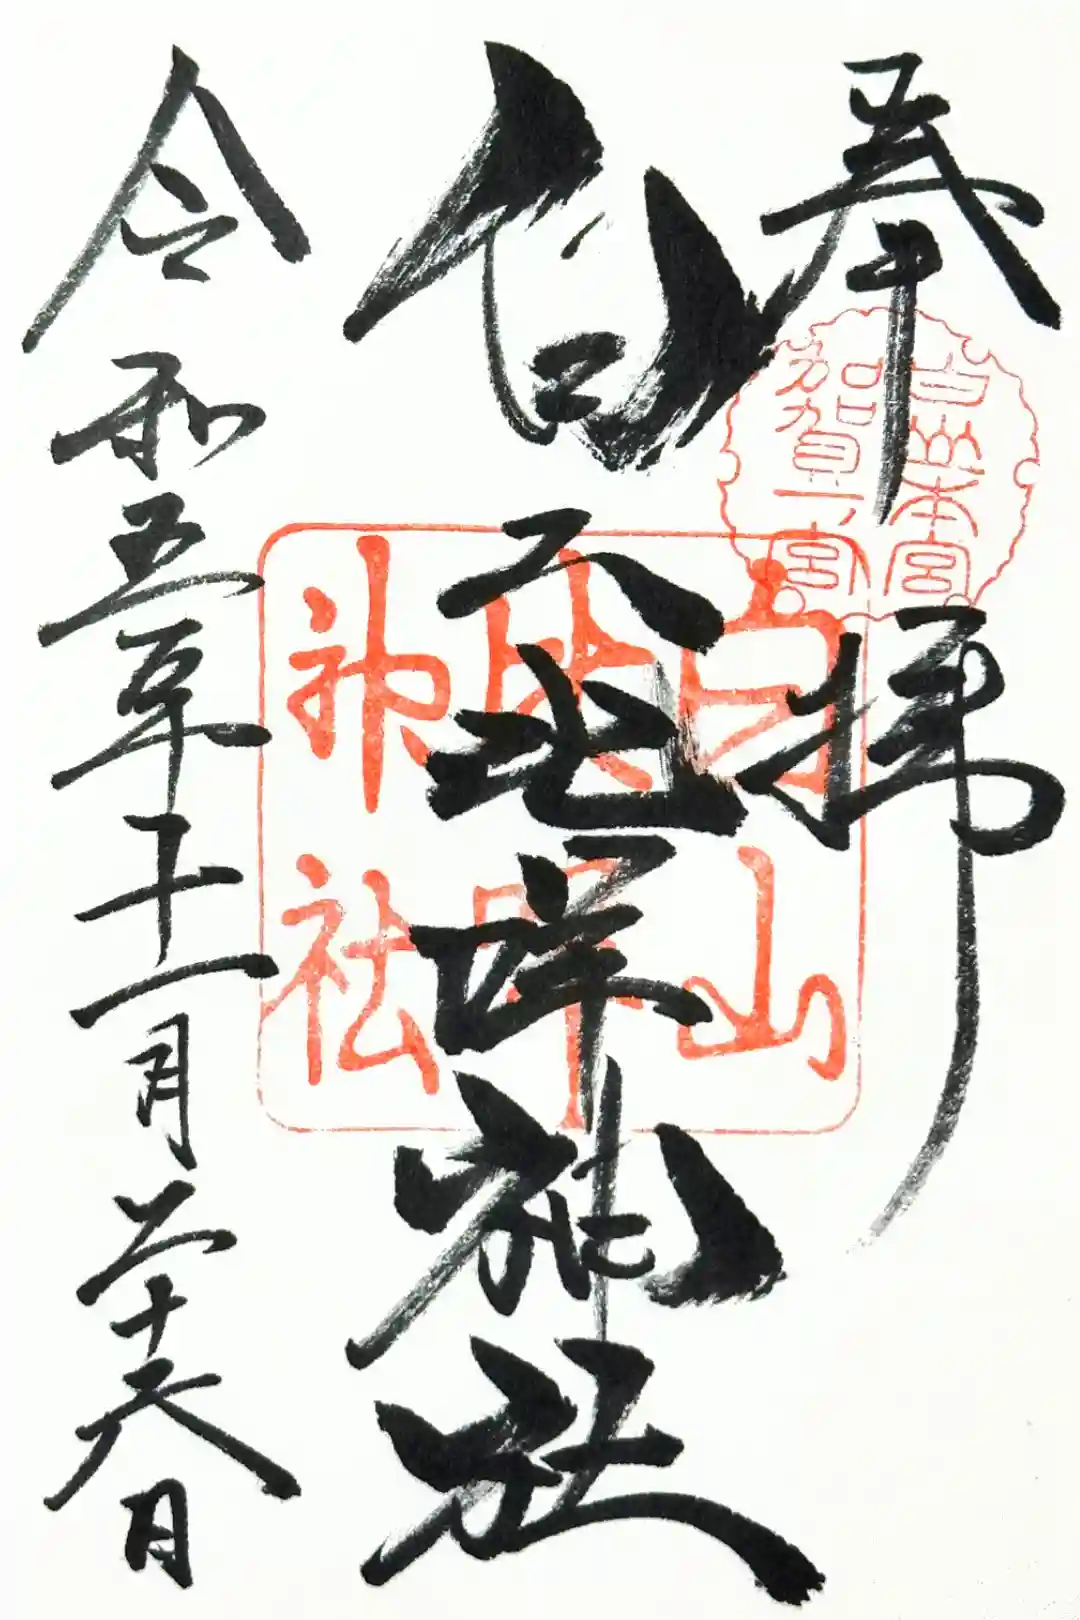 奉拝
白山本宮
加賀一ノ宮
白山比咩神社
白山
比咩
神社
令和五年十一月二十六日